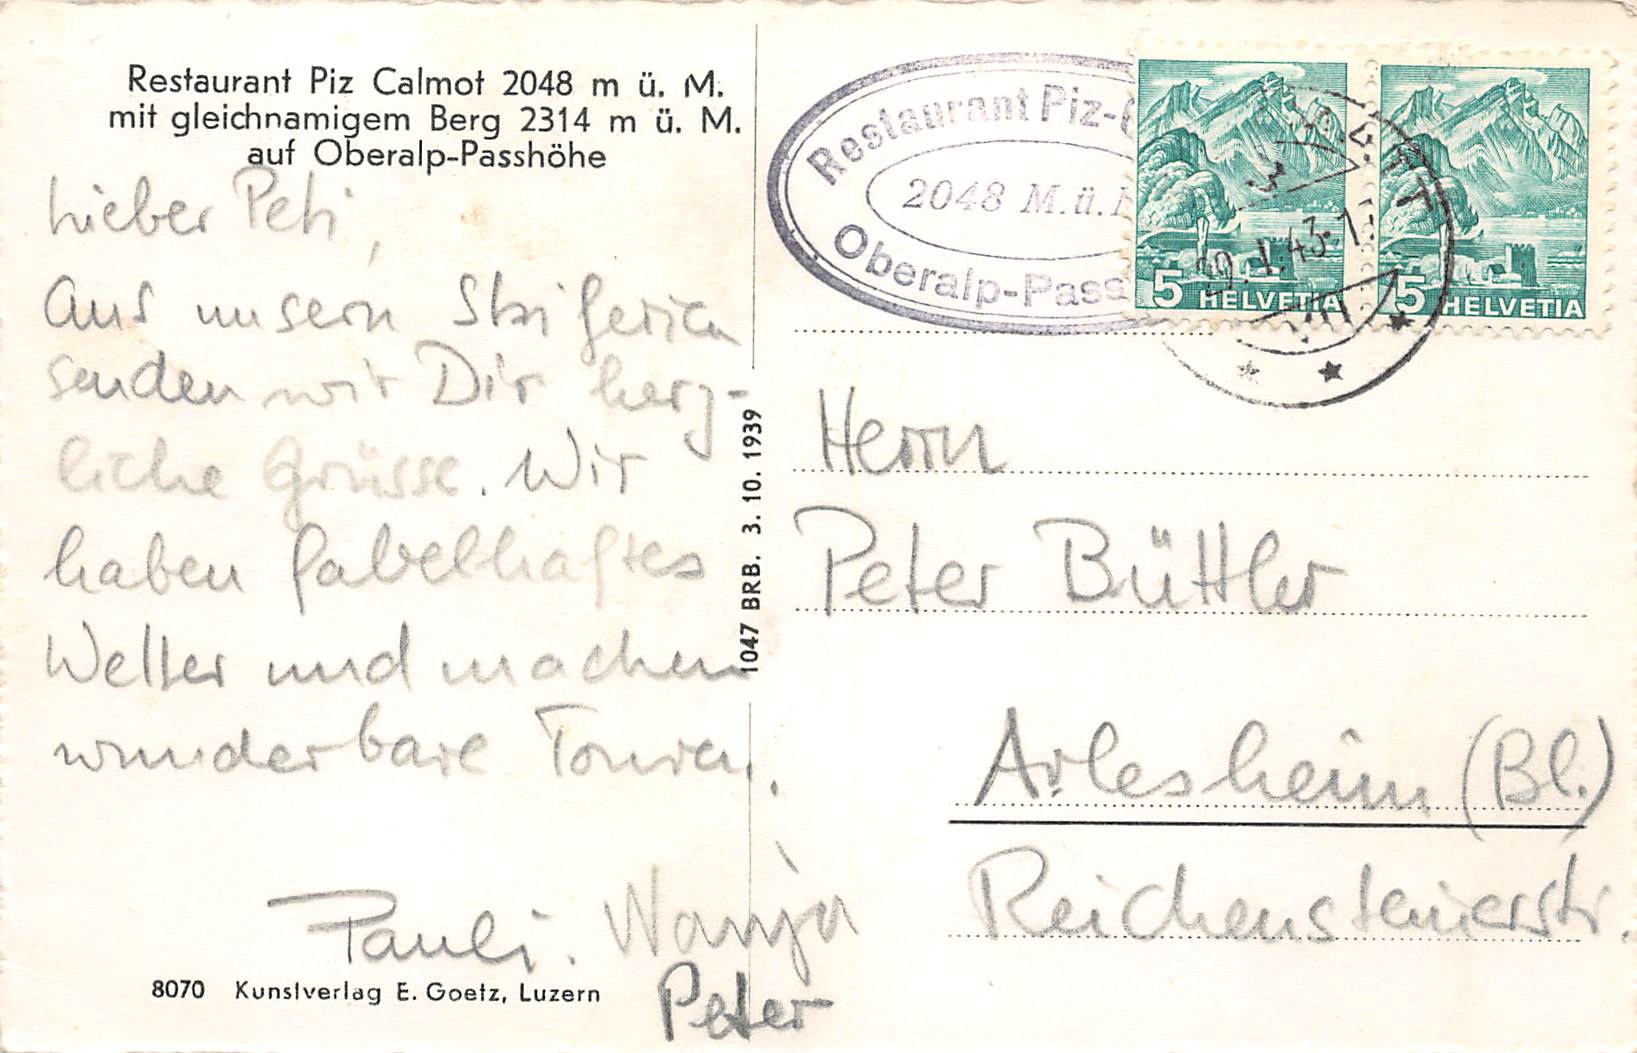 Restaurant Piz Calmot 2048 m ü. M.
mit gleichnamigem Berg 2314 m ü. M.
auf Oberalp-Passhöhe
Lieber Peti,
Aus unsern Skiferien
senden wir Dir herz-
liche Grüsse. Wir
haben fabelhaftes
Wetter und machen
wunderbare Touren.
Pauli. Wanja
Peter
8070 Kunstverlag E. Goetz, Luzern
1047 BRB. 3. 10. 1939
Restaurant Piz-
2048 M.ü.
Oberalp-Pass
5 HELVETIA
5 HELVETIA
43
Herrn
Peter Büttler
Arlesheim (Bl.)
Reichensteinerstr.